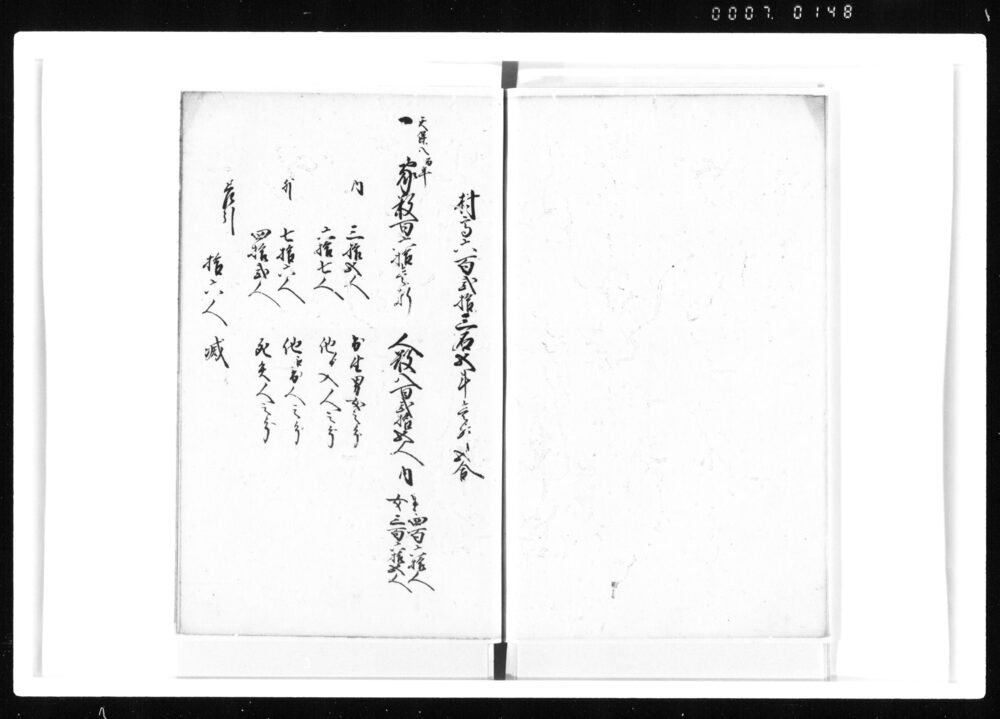 0007. 0148
村高六百弐拾三石五斗壱升五合
天保八酉年
一 家数百六拾壱軒 人数八百弐拾五人 内
男四百六拾人
女三百六拾五人
内 三拾五人 出生男女之分
六拾七人 他ゟ入人之分
外 七拾六人 他江出人之分
四拾弐人 死失人之分
差引
拾六人 減